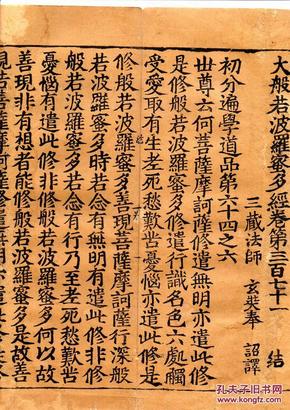 大般若波羅蜜多經卷第三百七十一 結
三藏法師 玄奘奉 詔譯
初分遍學道品第六十四之六
世尊云何菩薩摩訶薩修遣無明亦遣此修
是修般若波羅蜜多修遣行識名色六處觸
受愛取有生老死愁歎苦憂惱亦遣此修是
修般若波羅蜜多善現若菩薩摩訶薩行深般
若波羅蜜多時若念有無明有遣此修非修
般若波羅蜜多若念有行乃至老死愁歎苦
憂惱有遣此修非修般若波羅蜜多何以故
善現非有想者能修般若波羅蜜多是故善
現若菩薩摩訶薩修遣
孔夫子旧书网